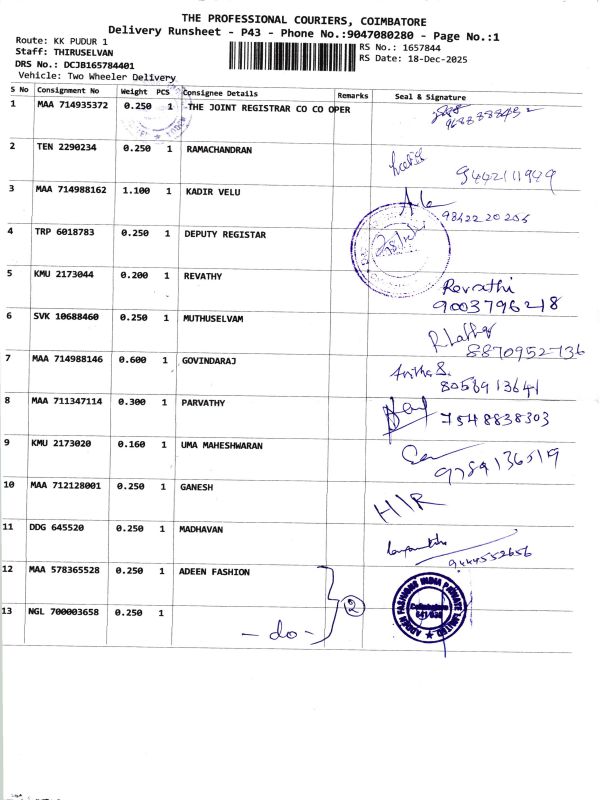 THE PROFESSIONAL COURIERS, COIMBATORE
Delivery Runsheet - P43 - Phone No.:9047080280 - Page No.:1
Route: KK PUDUR 1
RS No.: 1657844
Staff: THIRUSELVAN
RS Date: 18-Dec-2025
DRS No.: DCJB165784401
Vehicle: Two Wheeler Delivery
S No Consignment No Weight PCS Consignee Details Remarks Seal & Signature
1 MAA 714935372 0.250 1 THE JOINT REGISTRAR CO CO OPER
2 TEN 2290234 0.250 1 RAMACHANDRAN
9442111949
3 MAA 714988162 1.100 1 KADIR VELU
9842220205
4 TRP 6018783 0.250 1 DEPUTY REGISTAR
5 KMU 2173044 0.200 1 REVATHY
Revathi
9003796218
6 SVK 10688460 0.250 1 MUTHUSELVAM
8870952736
7 MAA 714988146 0.600 1 GOVINDARAJ
Anitha S.
8056913641
8 MAA 711347114 0.300 1 PARVATHY
7548838303
9 KMU 2173020 0.160 1 UMA MAHESHWARAN
9789136519
10 MAA 712128001 0.250 1 GANESH
H/R
11 DDG 645520 0.250 1 MADHAVAN
9444552656
12 MAA 578365528 0.250 1 ADEEN FASHION
2
ADDEN FASHIONS INDIA PRIVATE LIMITED
Coimbatore
641 038
13 NGL 700003658 0.250 1
- do -